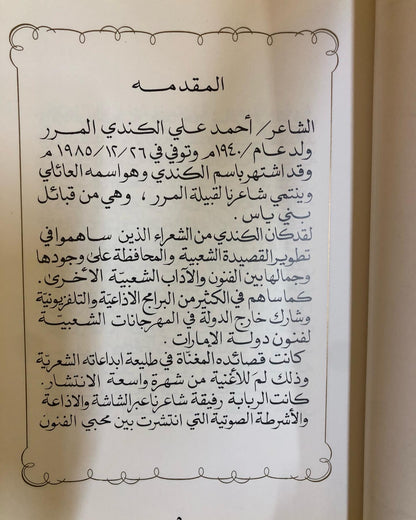 المقدمه
الشاعر/ أحمد علي الكندي المرر
ولد عام/ ١٩٤٠م وتوفي في ١٩٨٥/١٢/٢٦ م
وقد اشتهر باسم الكندي وهو اسمه العائلي
وينتمي شاعرنا لقبيلة المرر ، وهي من قبائل
بني ياس .
لقد كان الكندي من الشعراء الذين ساهموا في
تطوير القصيدة الشعبية والمحافظة على وجودها
وجمالها بين الفنون والآداب الشعبيّة الأخرىٰ.
كما ساهم في الكثير من البرامج الاذاعيّة والتلفزيونيّة
وشارك خارج الدولة في المهرجانات الشعبية
لفنون دولة الامارات .
كانت قصائده المغنّاة في طليعة ابداعاته الشعريّة
وذلك لم للأغنية من شهرة واسعة الانتشار .
كانت الربابة رفيقة شاعرنا عبر الشاشة والاذاعة
والأشرطة الصوتية التي انتشرت بين محبي الفنون